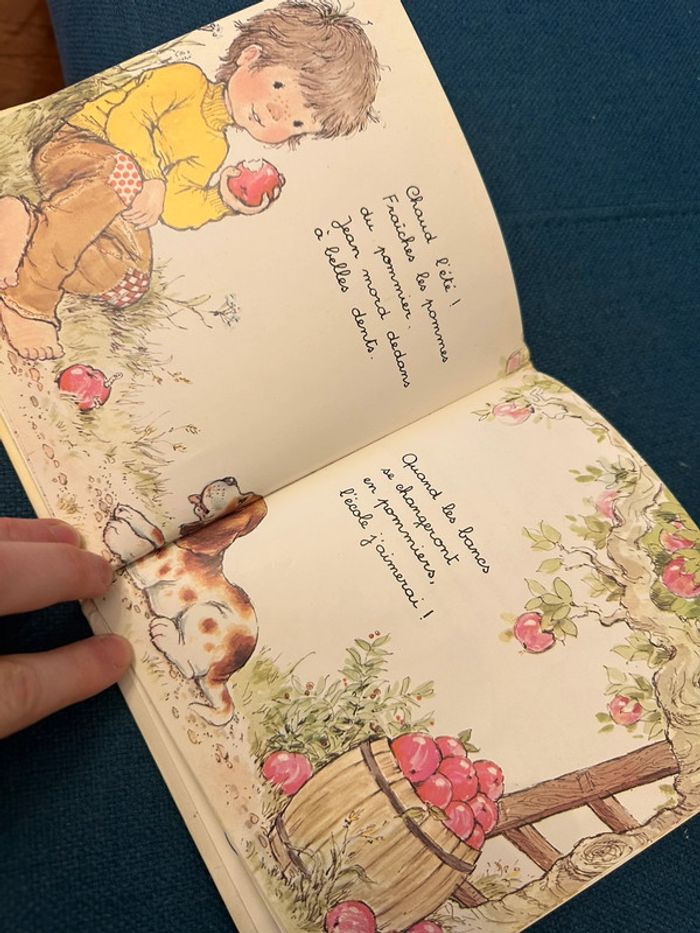 Chaud l'été !
Fraîches les pommes
du pommier.
Jean mord dedans
à belles dents.
Quand les bancs
se changeront
en pommiers,
l'école j'aimerai !